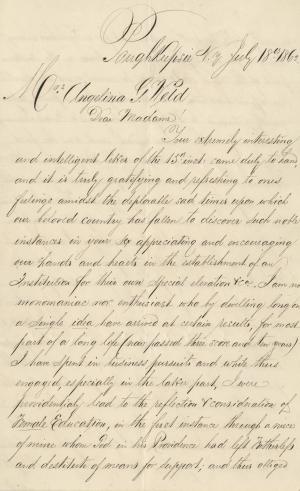 Poughkeepsie N.Y. July 18th 186
Mrs Angelina G. Weld
Dear Madam
Your extremely interesting
and intelligent letter of the 15th inst. came duly to hand
and it is truly gratifying and refreshing to ones
feelings amidst the deplorable sad times upon which
our beloved country has fallen to discover such noble
instances in your appreciating and encouraging
our hands and hearts in the establishment of an
Institution for their own special elevation &c. I am no
monomaniac nor enthusiast who by dwelling long on
a single idea have arrived at certain results, for most
part of a long life (now passed three score and ten years)
I have spent in business pursuits and while thus
engaged, especially in the latter part, I were
providentially lead to the reflection & consideration of
Female Education, in the first instance through a niece
of mine whom God in his Providence had left Fatherless
and destitute of means for support; and thus obliged